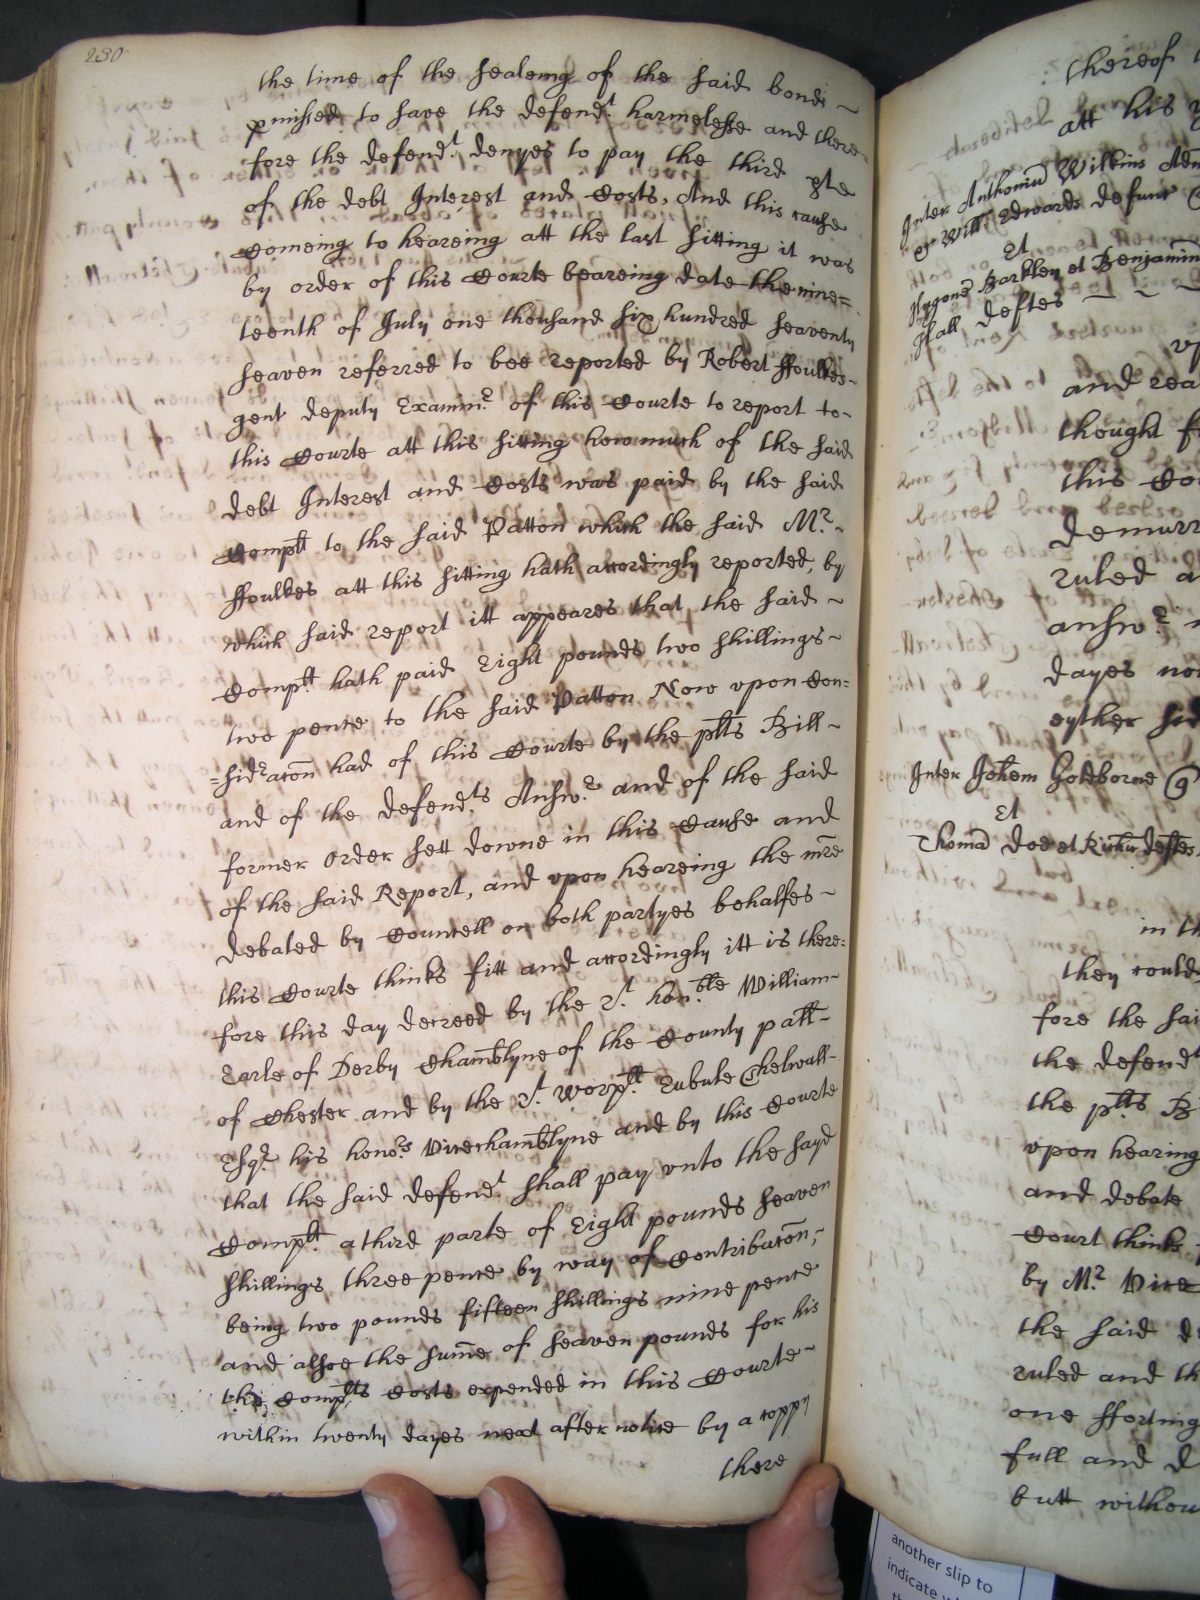 230
the time of the sealeing of the said bonds ~
pmissed to save the defend.t harmelesse and there-
fore the defend.t denyes to pay the third pte
of the debt Interest and Costs, And this cause
Comeing to heareing att the last sitting it was
by order of this Courte beareing date the nine=
teenth of July one thousand six hundred seaventy
seaven referred to bee reported by Robert ffoulkes-
gent deputy Examin.r of this Courte to report to-
this Courte att this sitting how much of the said
debt Interest and Costs was paid by the said
Complt to the said Patton which the said M.r ~
ffoulkes att this sitting hath accordingly reported, by
which said report itt appeares that the said ~
Complt hath paid Eight pounds two shillings ~
two pence to the said Patton Now upon Con=
=sid.racon had of this Courte by the plts Bill ~
and of the defend.ts Answ.r and of the said
former Order sett downe in this Cause and
of the said Report, and upon heareing the mre
debated by Councell on both partyes behalfes ~
this Courte thinks fitt and accordingly itt is there=
fore this day decreed by the r.t hon.ble William ~
Earle of Derby Chamblyne of the County patt-
of Chester and by the r.t worpll Eubule Thelwall-
Esq.r his hono.rs Vicechamblyne and by this Courte
that the said defend.t shall pay unto the sayd
Complt a third parte of Eight pounds seaven
shillings three pence by way of Contribucon,-
being two pounds fifteen shillings nine pence
and alsoe the sume of seaven pounds for his
the Complts Costs expended in this Courte ~
within twenty dayes next after notice by a coppy
there
thereof
att his
Inter Anthoniu Wilkins Adm
Willi Edwards defunct
Et
Barkley et Benjamin
Hall deftes
and rea
thought f
this Co
demurr
ruled a
answ.r
dayes no
eyther sid
Inter Johem Goldborne
Et
Thoma Doe et deftes
in th
they could
fore the sai
the defend.t
the plts B
upon hearing
and debate
Court thinks
by M.r Vice
the said de
ruled and th
one
full and d
butt withou
another slip to
indicate w